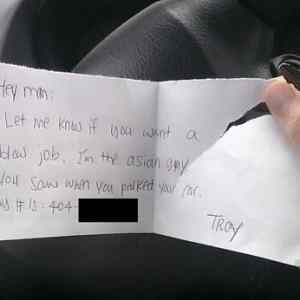 Hey man:
Let me know if you want a
blow job. I'm the asian guy
you saw when you parked your car.
# is: 404-
TROY